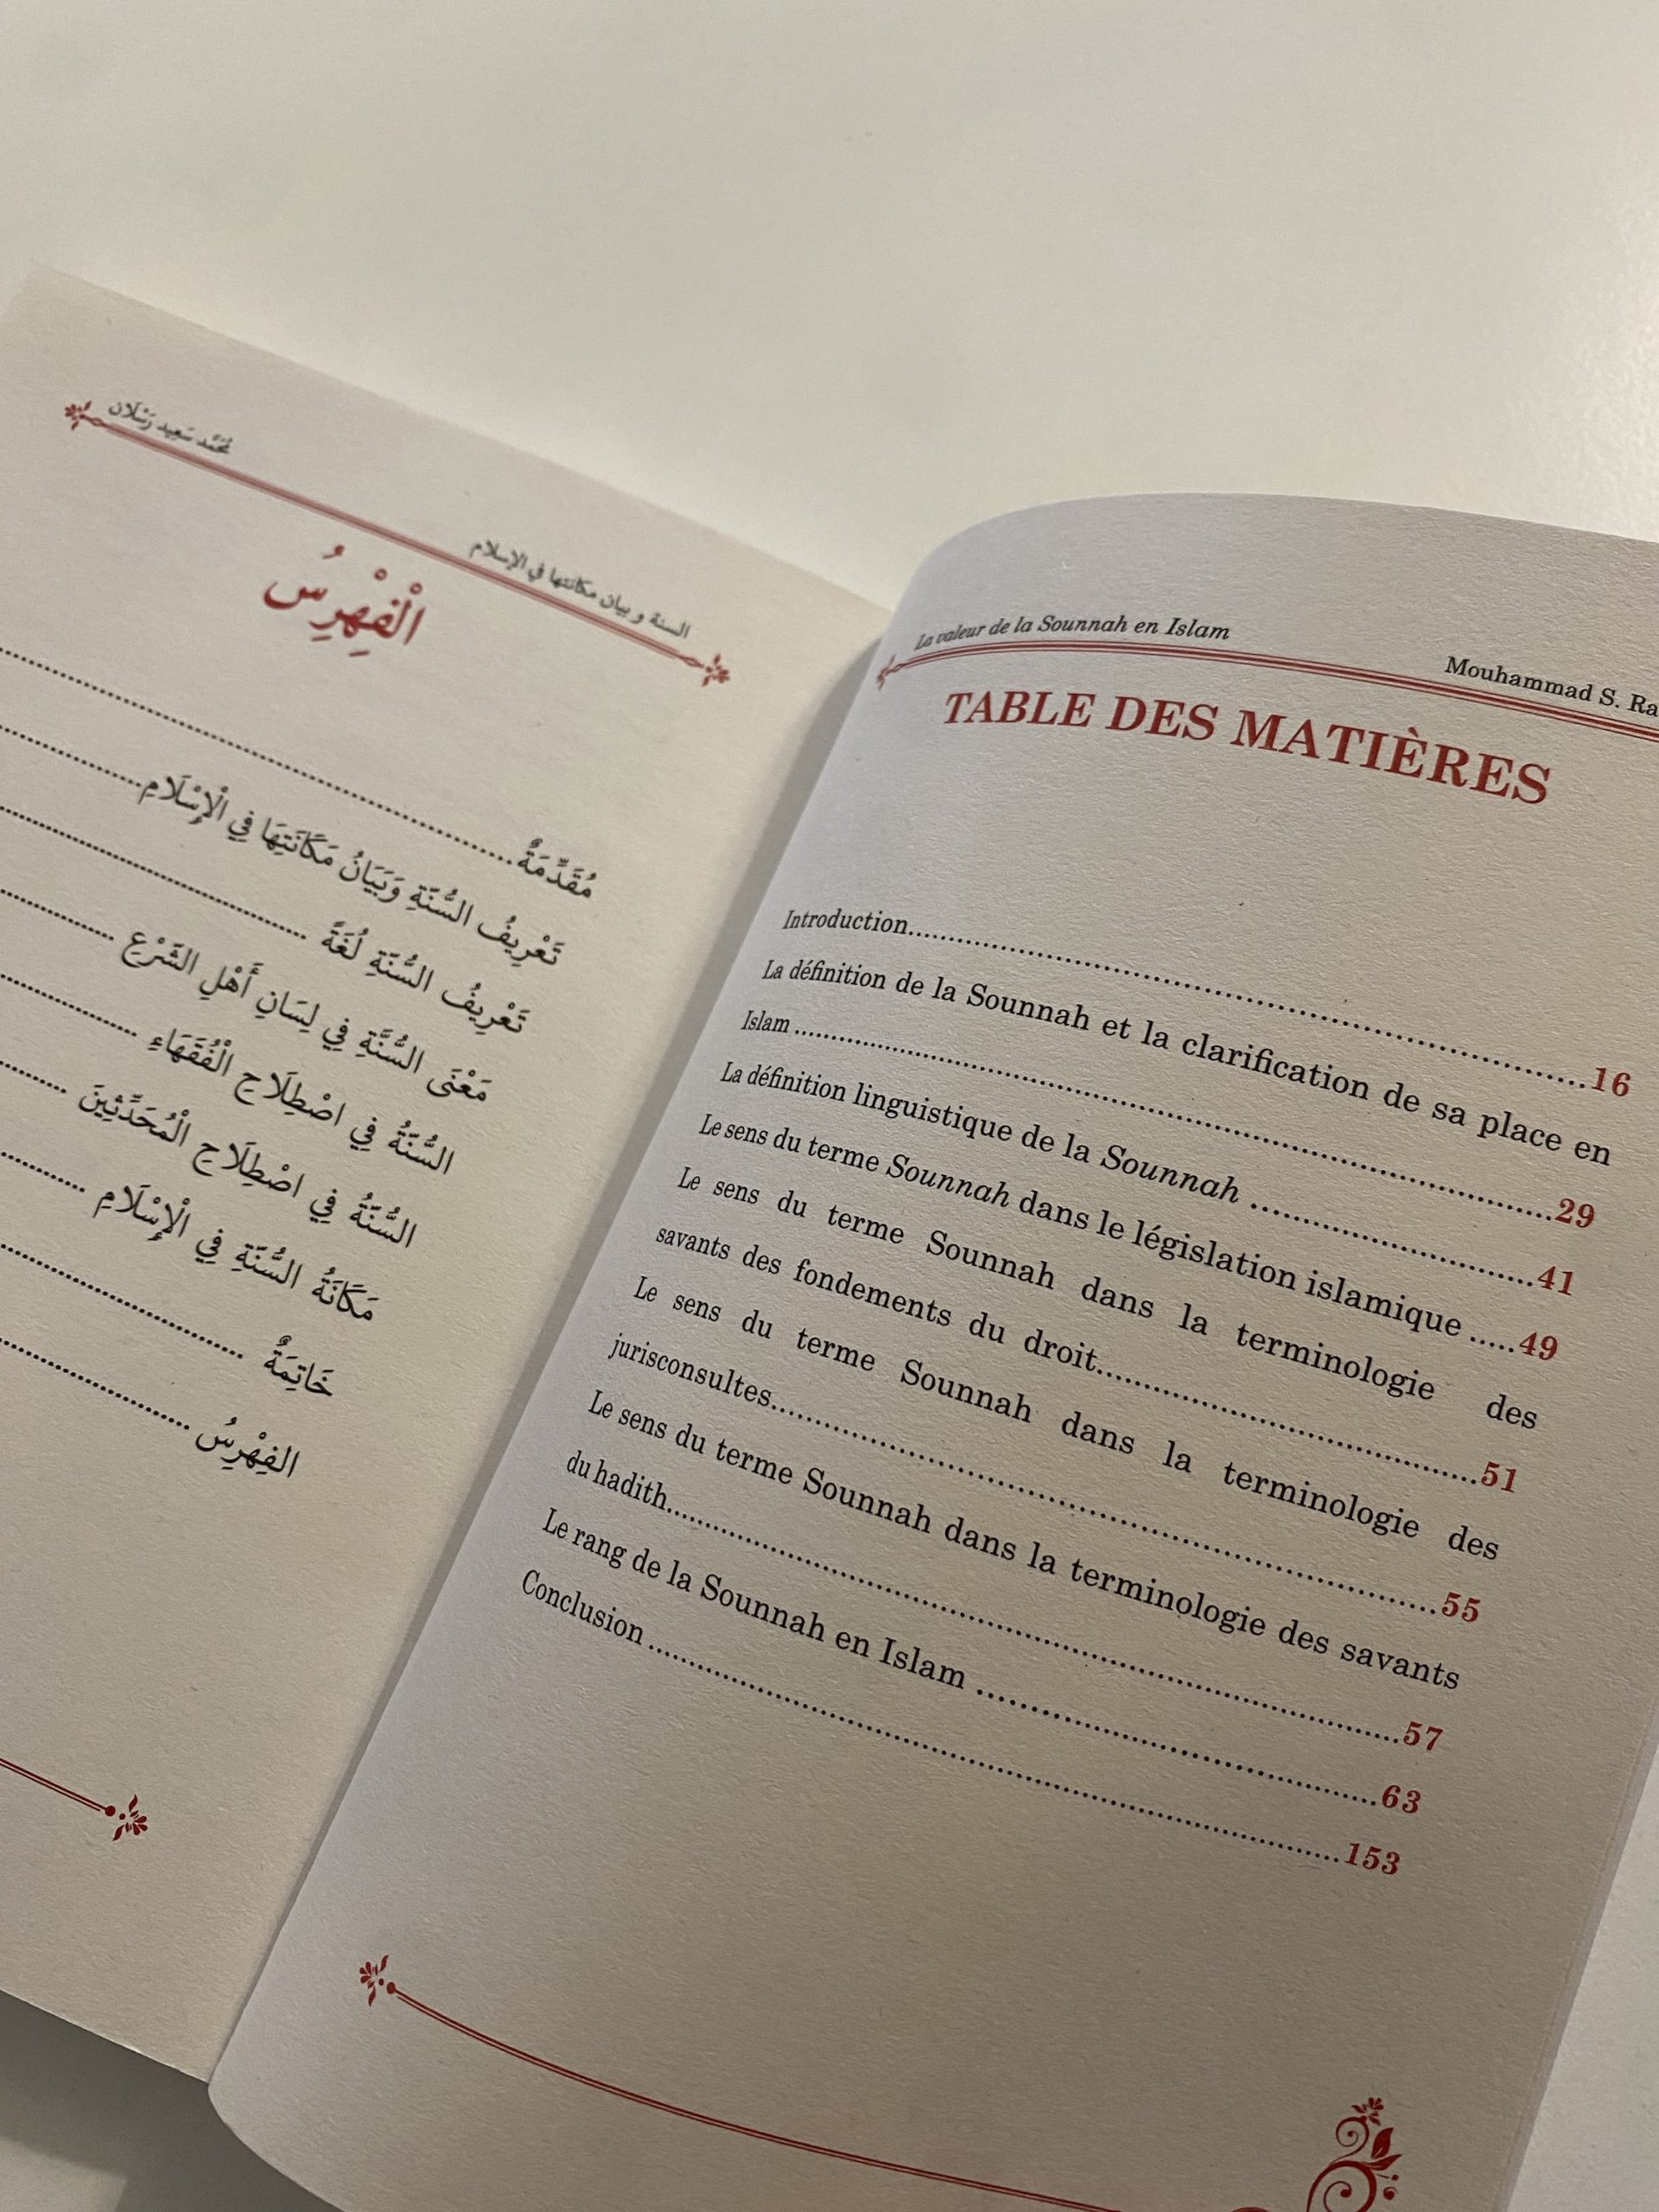 محمد سعيد رسلان
السنة و بيان مكانتها في الإسلام
الْفِهْرِسُ
مُقَدِّمَةٌ
تَعْرِيفُ السُّنَّةِ وَبَيَانُ مَكَانَتِهَا فِي الْإِسْلَامِ
تَعْرِيفُ السُّنَّةِ لُغَةً
مَعْنَى السُّنَّةِ فِي لِسَانِ أَهْلِ الشَّرْعِ
السُّنَّةُ فِي اصْطِلَاحِ الْفُقَهَاءِ
السُّنَّةُ فِي اصْطِلَاحِ الْمُحَدِّثِينَ
مَكَانَةُ السُّنَّةِ فِي الْإِسْلَامِ
خَاتِمَةٌ
الفِهْرِسُ
La valeur de la Sounnah en Islam
Mouhammad S.
TABLE DES MATIÈRES
Introduction 16
La définition de la Sounnah et la clarification de sa place en
Islam 29
La définition linguistique de la Sounnah 41
Le sens du terme Sounnah dans le législation islamique 49
Le sens du terme Sounnah dans la terminologie des
savants des fondements du droit 51
Le sens du terme Sounnah dans la terminologie des
jurisconsultes 55
Le sens du terme Sounnah dans la terminologie des savants
du hadith 57
Le rang de la Sounnah en Islam 63
Conclusion 153